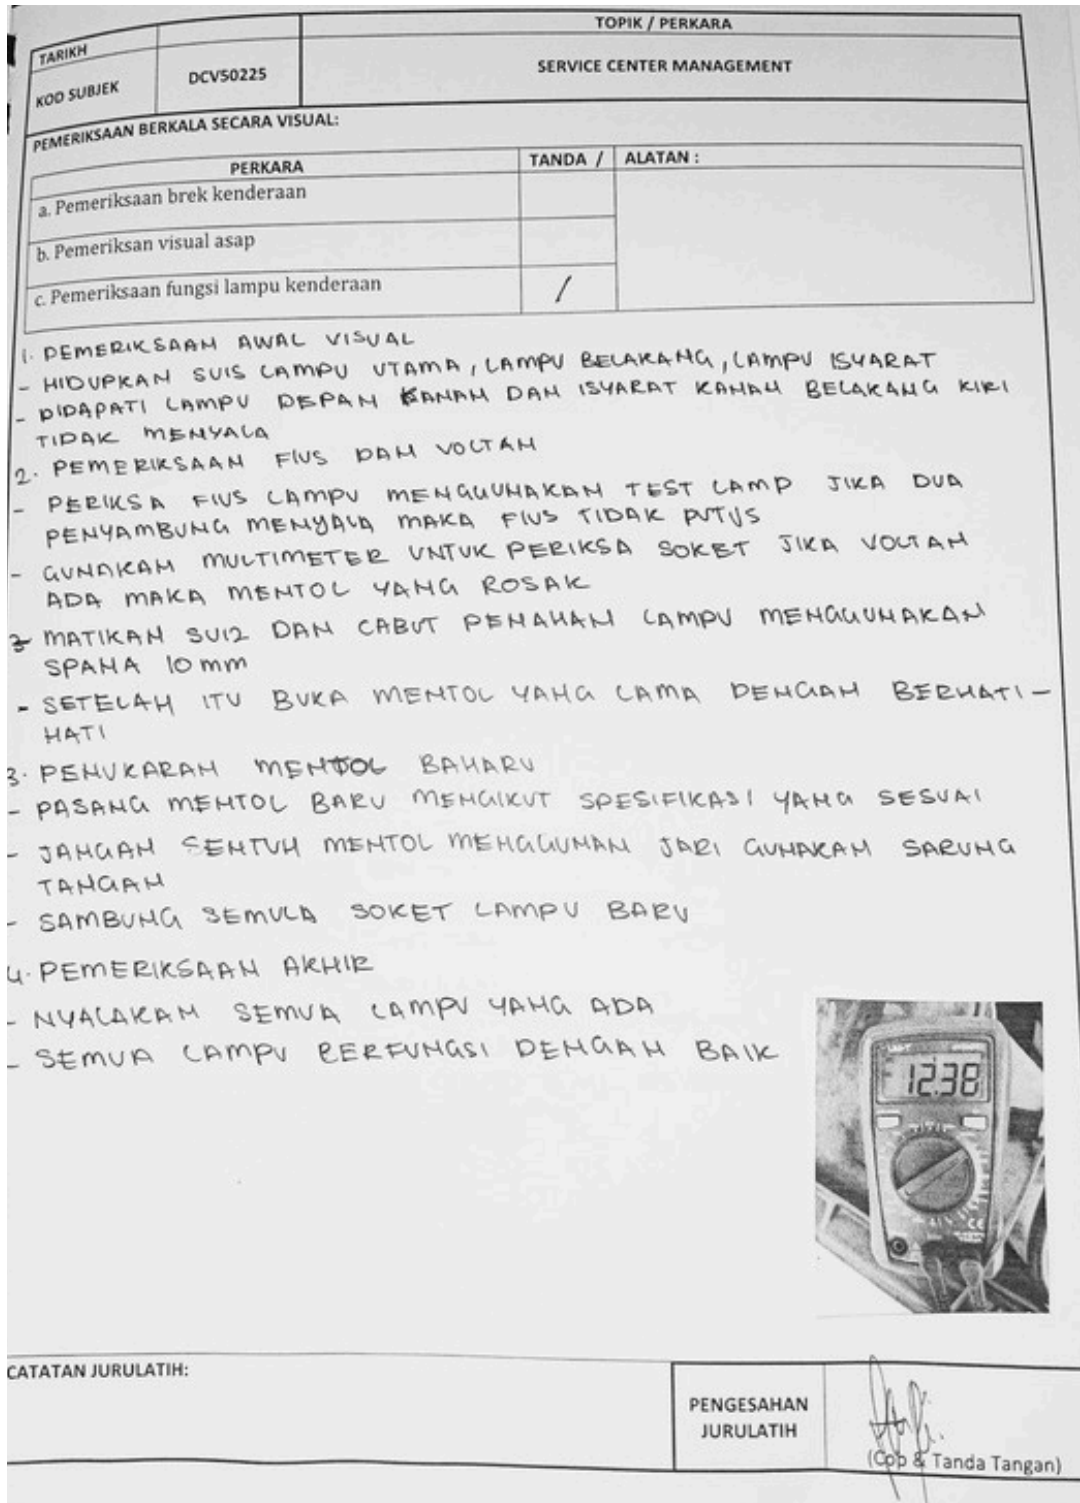 TOPIK / PERKARA
TARIKH
KOD SUBJEK
DCV50225
SERVICE CENTER MANAGEMENT
PEMERIKSAAN BERKALA SECARA VISUAL:
PERKARA
TANDA /
ALATAN :
a. Pemeriksaan brek kenderaan
b. Pemeriksan visual asap
c. Pemeriksaan fungsi lampu kenderaan
/
1. PEMERIKSAAN AWAL VISUAL
- HIDUPKAN SUIS LAMPU UTAMA, LAMPU BELAKANG, LAMPU ISYARAT
- DIDAPATI LAMPU DEPAN KANAN DAN ISYARAT KANAN BELAKANG KIRI
TIDAK MENYALA
2. PEMERIKSAAN FIUS DAN VOLTAN
- PERIKSA FIUS LAMPU MENGGUNAKAN TEST LAMP JIKA DUA
PENYAMBUNG MENYALA MAKA FIUS TIDAK PUTUS
- GUNAKAN MULTIMETER UNTUK PERIKSA SOKET JIKA VOLTAN
ADA MAKA MENTOL YANG ROSAK
3 MATIKAN SUIZ DAN CABUT PENAHAN LAMPU MENGGUNAKAN
SPANA 10 mm
- SETELAH ITU BUKA MENTOL YANG LAMA DENGAN BERHATI-
HATI
3. PENUKARAN MENTOL BAHARU
- PASANG MENTOL BARU MENGIKUT SPESIFIKASI YANG SESUAI
- JANGAN SENTUH MENTOL MENGGUNAN JARI GUNAKAN SARUNG
TANGAN
- SAMBUNG SEMULA SOKET LAMPU BARU
4. PEMERIKSAAN AKHIR
- NYALAKAN SEMUA LAMPU YANG ADA
- SEMUA LAMPU BERFUNGSI DENGAN BAIK
12.38
CE
CATATAN JURULATIH:
PENGESAHAN
JURULATIH
(Cop & Tanda Tangan)